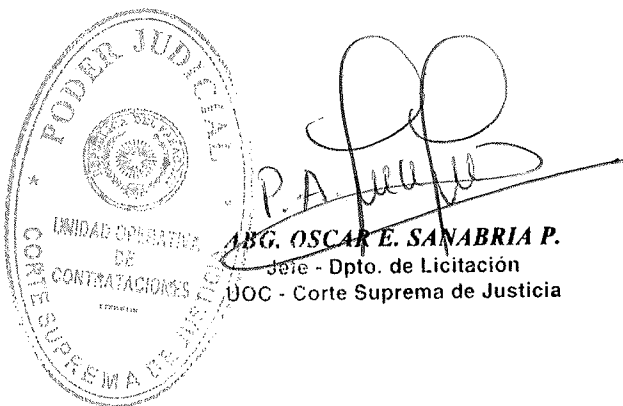 PODER JUDICIAL
REPUBLICA DEL PARAGUAY
UNIDAD OPERATIVA
DE
CONTRATACIONES
CORTE SUPREMA DE JUSTICIA
P.A.
ABG. OSCAR E. SANABRIA P.
Jefe - Dpto. de Licitación
UOC - Corte Suprema de Justicia